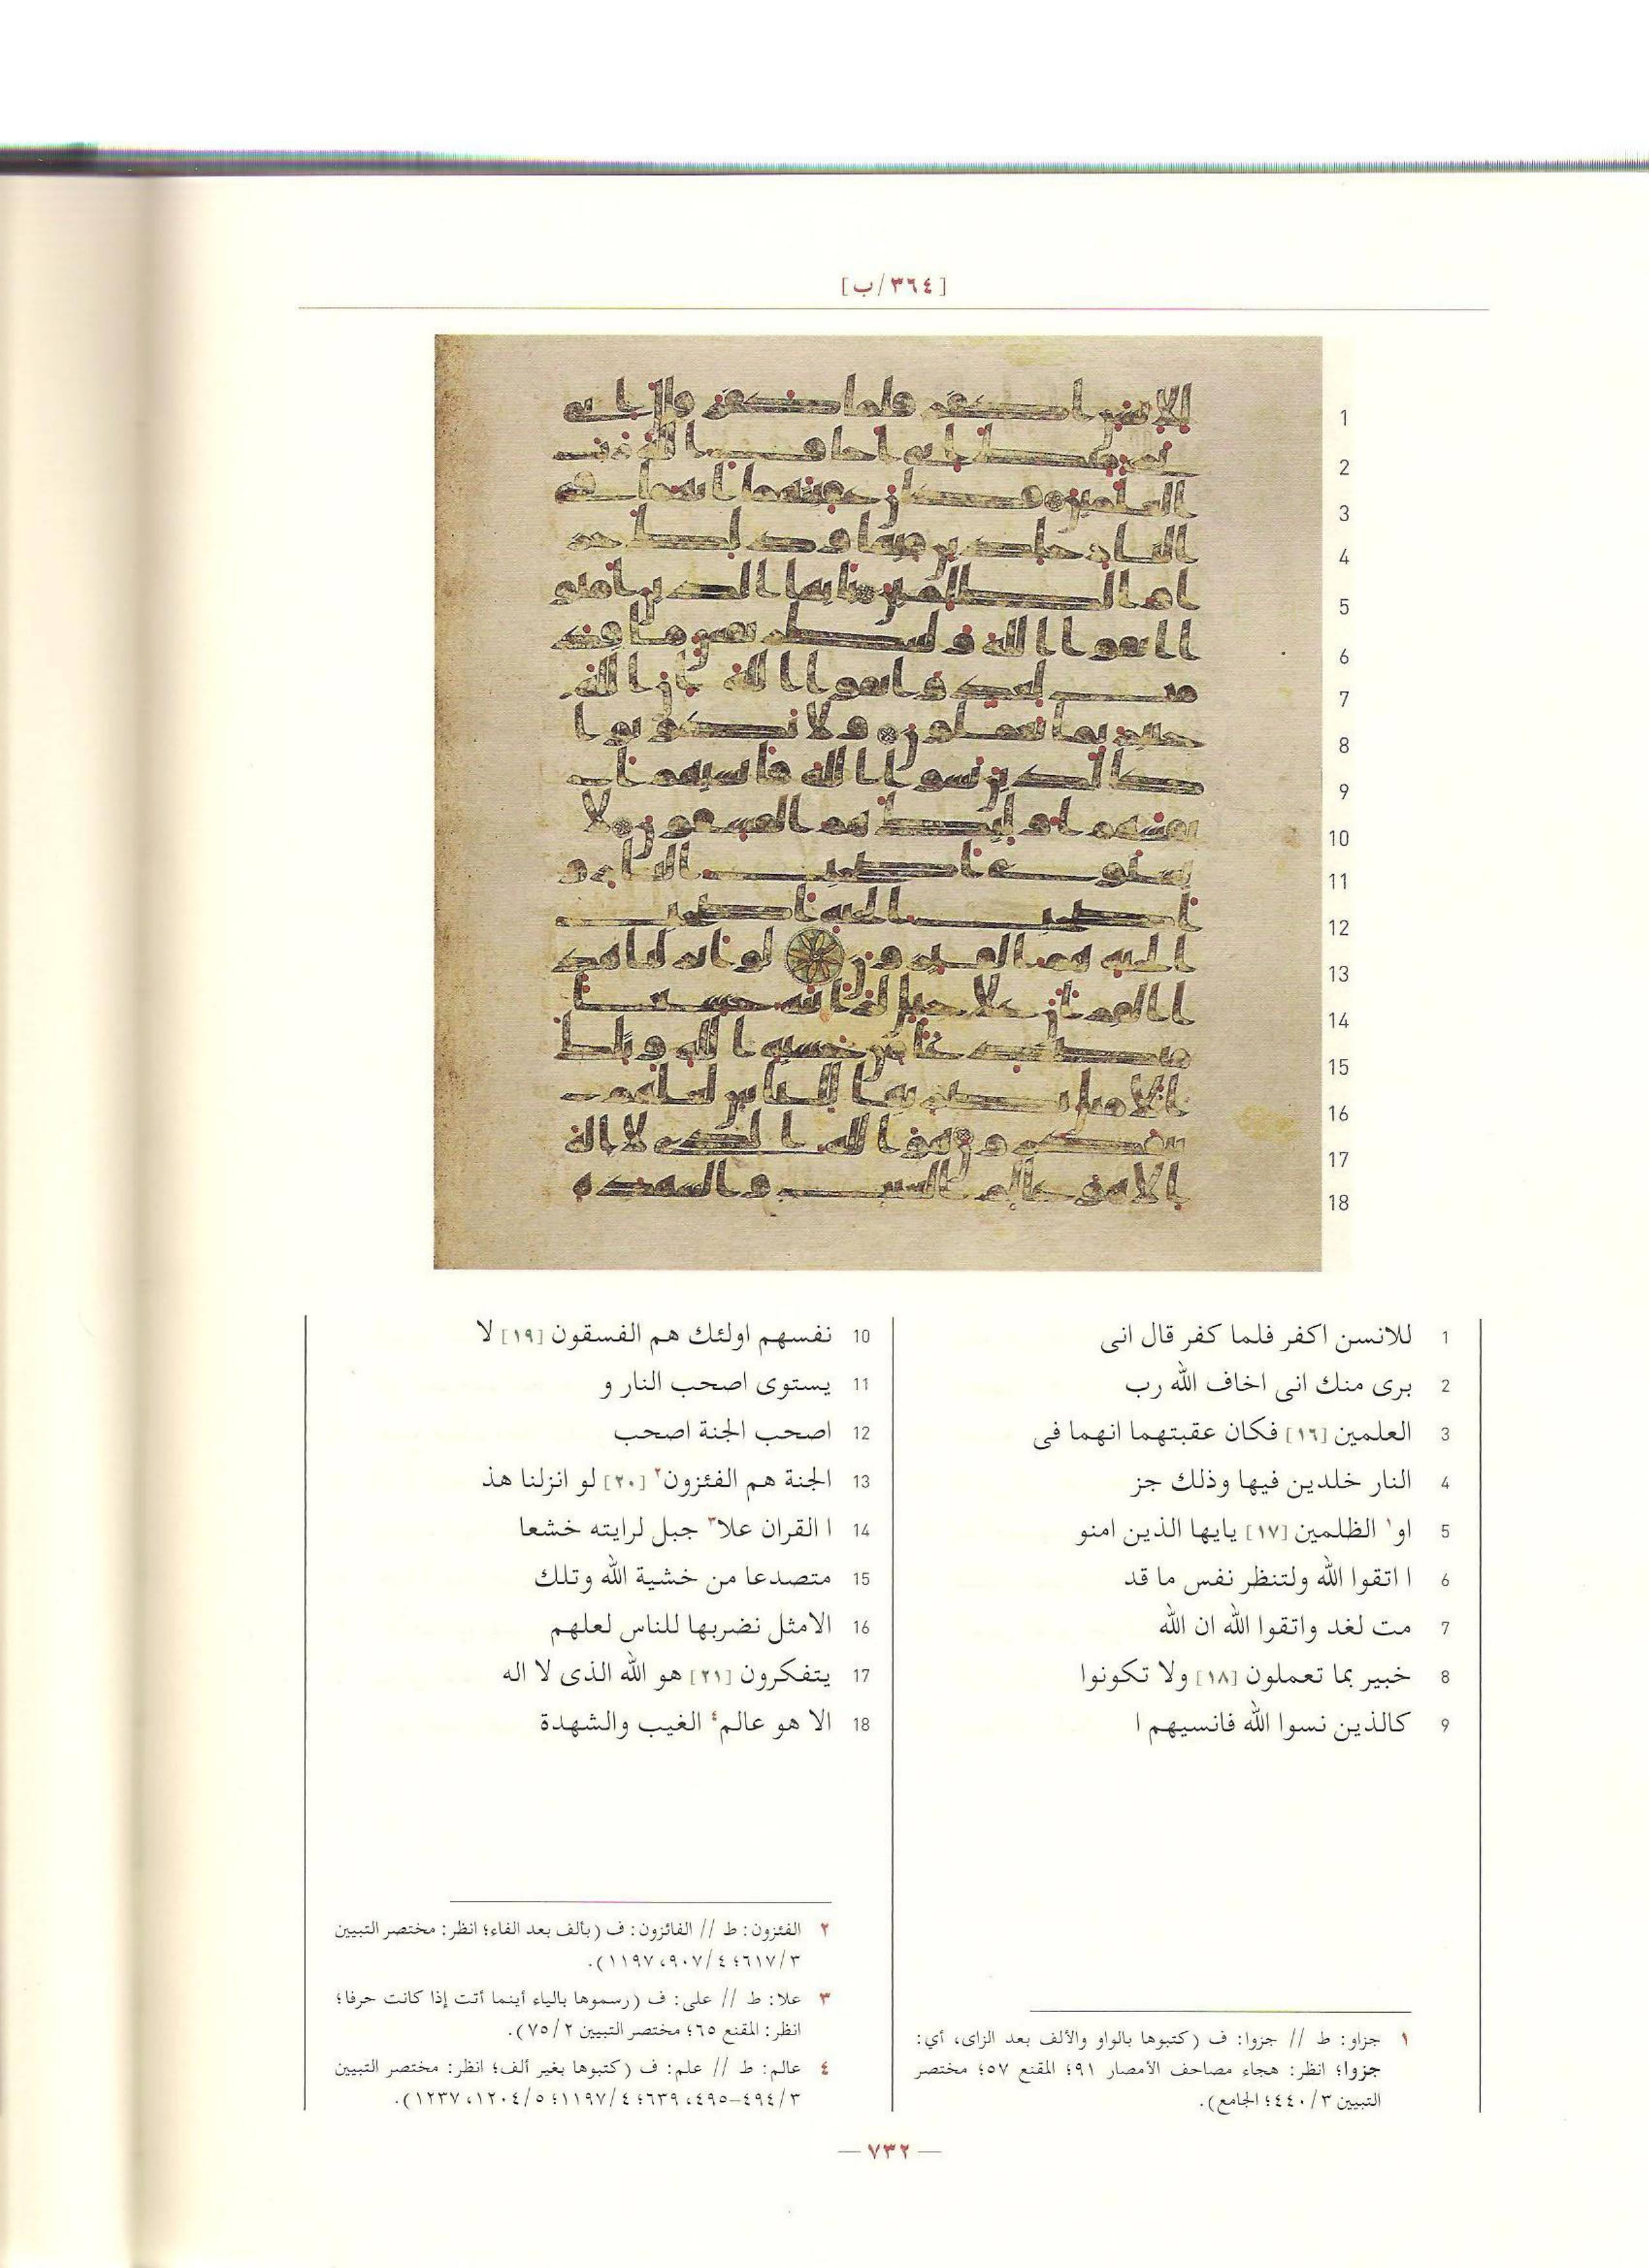 [٣٦٤/ب]
1 للانسن اكفر فلما كفر قال انى
2 برى منك انى اخاف الله رب
3 العلمين [١٦] فكان عقبتهما انهما فى
4 النار خلدين فيها وذلك جز
5 او١ الظلمين [١٧] يايها الذين امنو
6 ا اتقوا الله ولتنظر نفس ما قد
7 مت لغد واتقوا الله ان الله
8 خبير بما تعملون [١٨] ولا تكونوا
9 كالذين نسوا الله فانسيهم ا
10 نفسهم اولئك هم الفسقون [١٩] لا
11 يستوى اصحب النار و
12 اصحب الجنة اصحب
13 الجنة هم الفئزون٢ [٢٠] لو انزلنا هذ
14 ا القران علا٣ جبل لرايته خشعا
15 متصدعا من خشية الله وتلك
16 الامثل نضربها للناس لعلهم
17 يتفكرون [٢١] هو الله الذى لا اله
18 الا هو عالم٤ الغيب والشهدة
١ جزاو: ط // جزوا: ف (كتبوها بالواو والألف بعد الزاى، أي:
جزوا؛ انظر: هجاء مصاحف الأمصار ٩١؛ المقنع ٥٧؛ مختصر
التبيين ٤٤٠/٣؛ الجامع).
٢ الفئزون: ط // الفائزون: ف (بألف بعد الفاء؛ انظر: مختصر التبيين
٦١٧/٣؛ ٩٠٧/٤، ١١٩٧).
٣ علا: ط // على: ف (رسموها بالياء أينما أتت إذا كانت حرفا؛
انظر: المقنع ٦٥؛ مختصر التبيين ٧٥/٢).
٤ عالم: ط // علم: ف (كتبوها بغير ألف؛ انظر: مختصر التبيين
٤٩٤/٣-٤٩٥، ٦٣٩؛ ١١٩٧/٤؛ ١٢٠٤/٥، ١٢٣٧).
— ٧٣٢ —